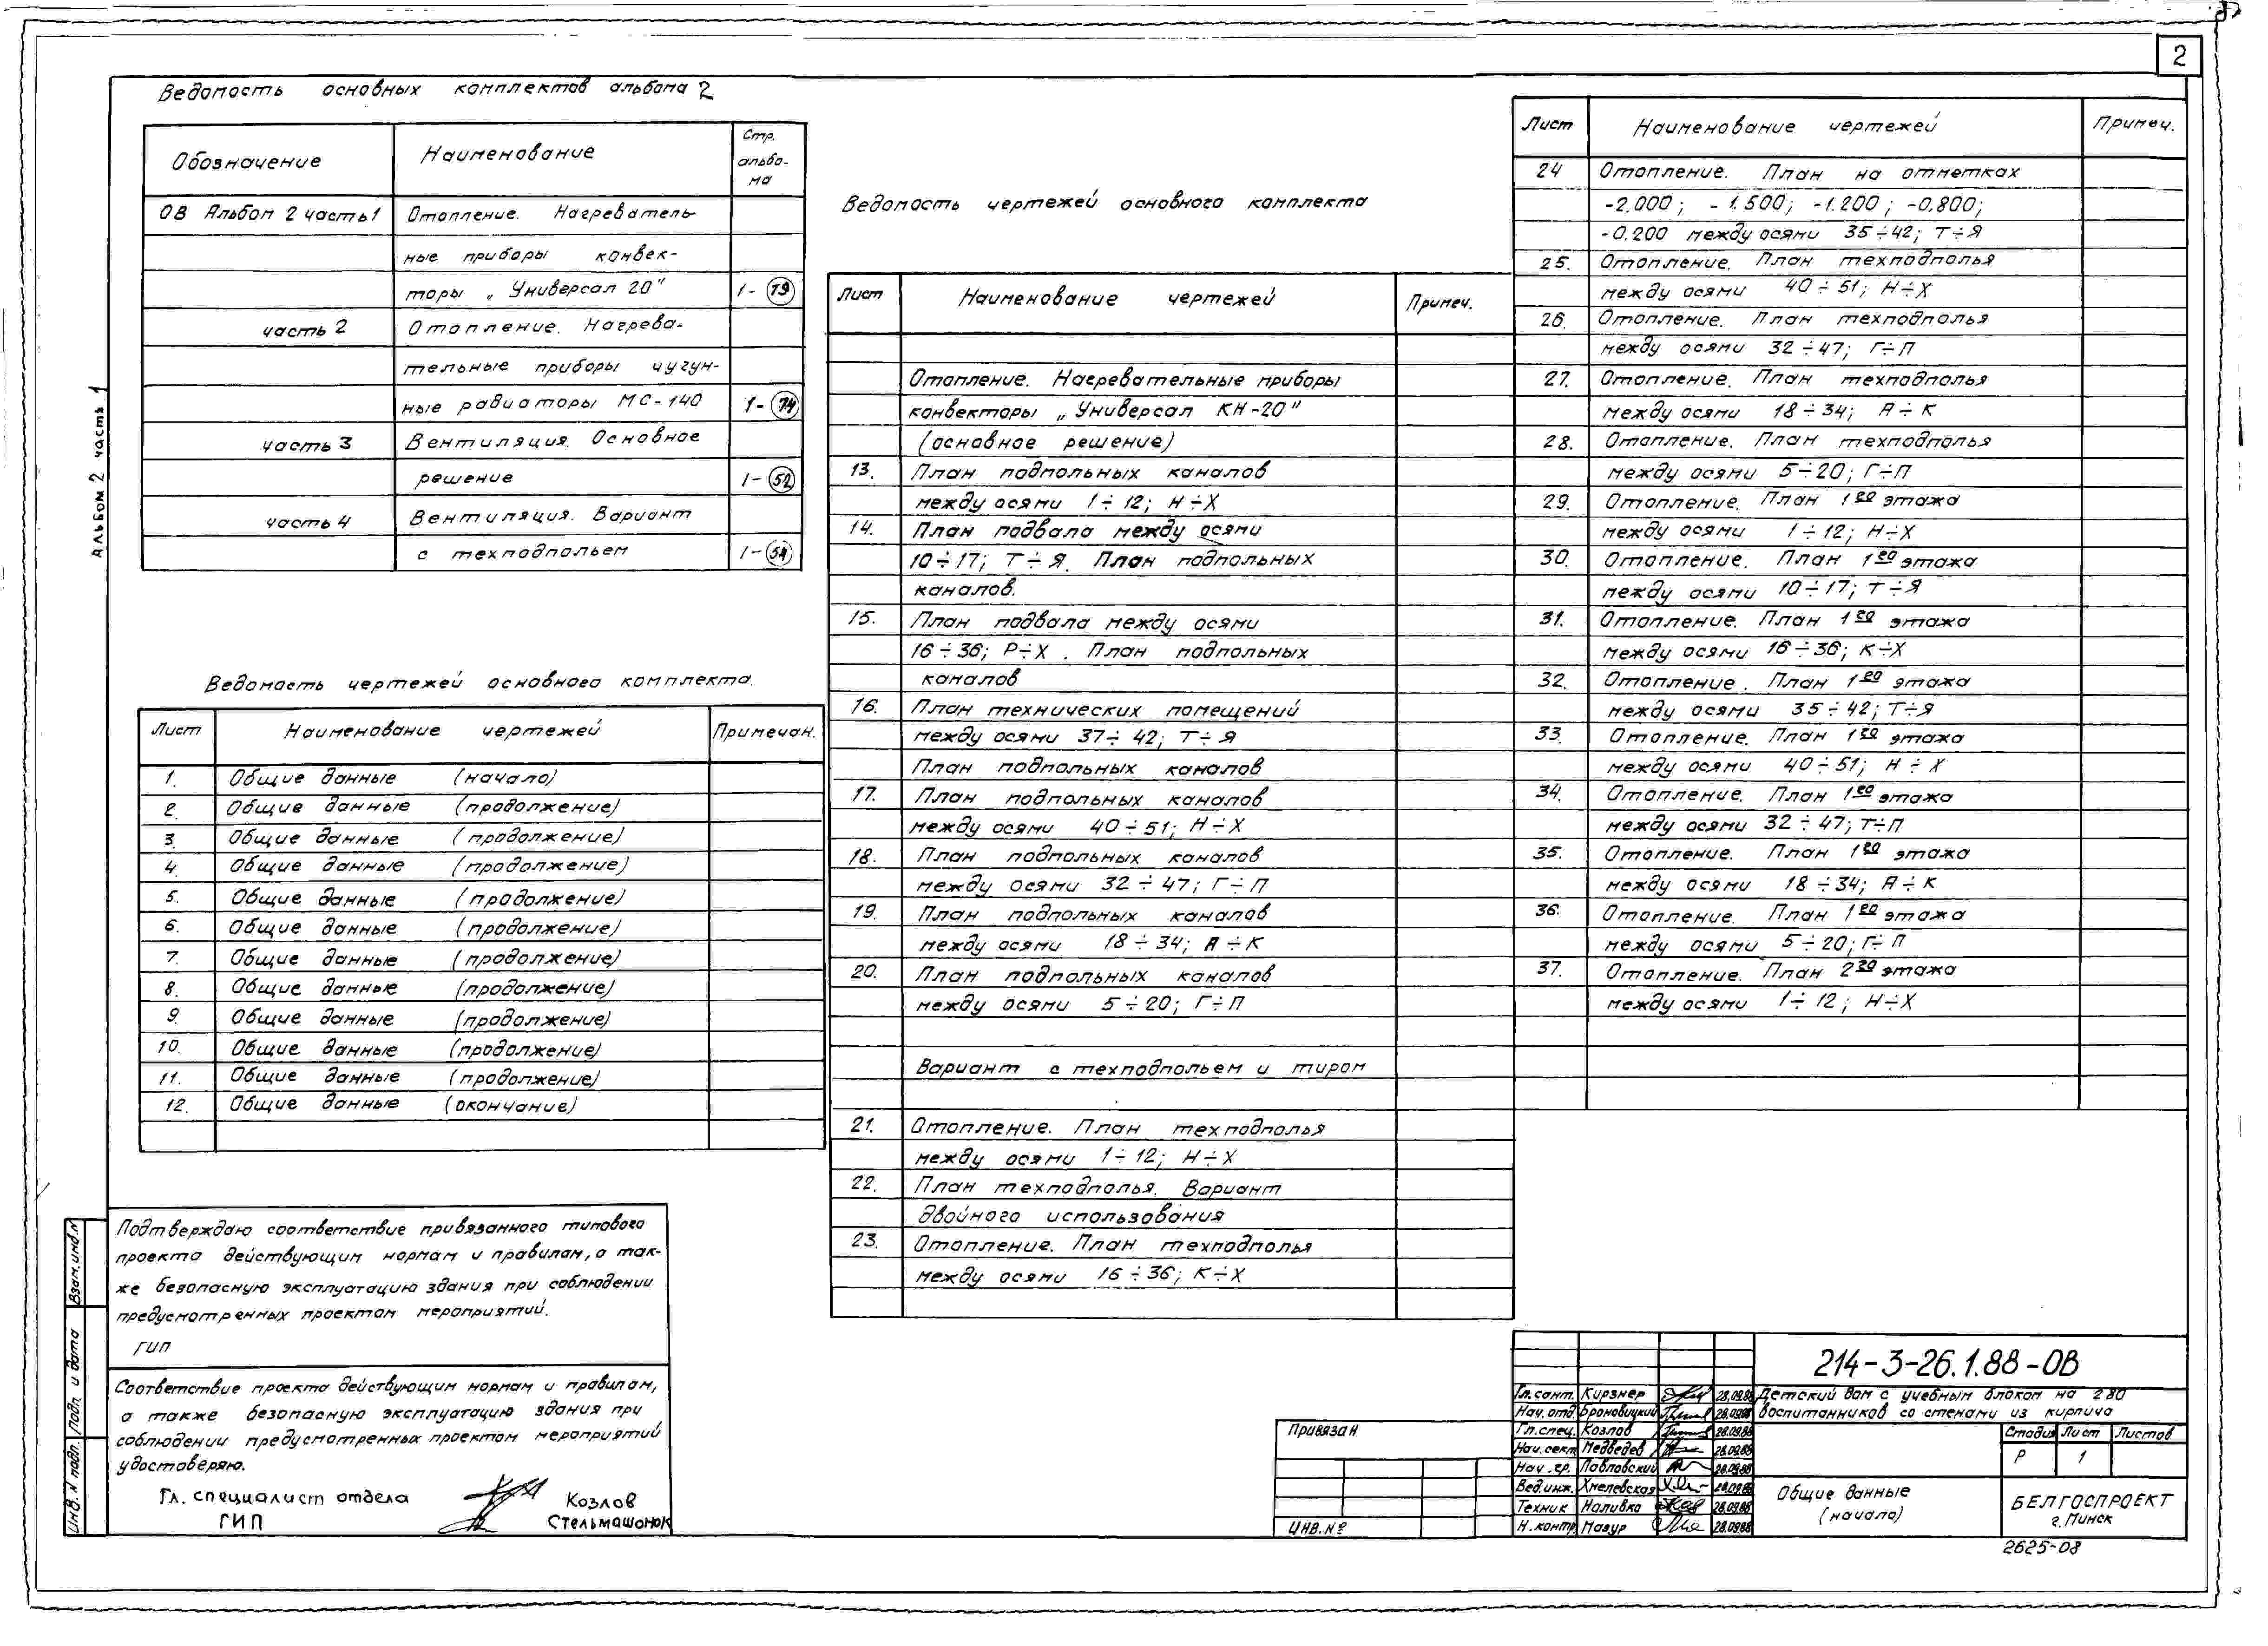 2
Альбом 2 часть 1
Ведомость основных комплектов альбома 2
Обозначение Наименование Стр. альбо-
ма
ОВ Альбом 2 часть 1 Отопление. Нагреватель-
ные приборы конвек-
торы „Универсал 20" 1-79
часть 2 Отопление. Нагрева-
тельные приборы чугун-
ные радиаторы МС-140 1-74
часть 3 Вентиляция. Основное
решение 1-52
часть 4 Вентиляция. Вариант
с техподпольем 1-54
Ведомость чертежей основного комплекта.
Лист Наименование чертежей Примечан.
1. Общие данные (начало)
2. Общие данные (продолжение)
3. Общие данные (продолжение)
4. Общие данные (продолжение)
5. Общие данные (продолжение)
6. Общие данные (продолжение)
7. Общие данные (продолжение)
8. Общие данные (продолжение)
9. Общие данные (продолжение)
10. Общие данные (продолжение)
11. Общие данные (продолжение)
12. Общие данные (окончание)
Подтверждаю соответствие привязанного типового
проекта действующим нормам и правилам, а так-
же безопасную эксплуатацию здания при соблюдении
предусмотренных проектом мероприятий.
ГИП
Соответствие проекта действующим нормам и правилам,
а также безопасную эксплуатацию здания при
соблюдении предусмотренных проектом мероприятий
удостоверяю.
Гл. специалист отдела Козлов
ГИП Стельмашонок
Взам.инв.N
Подп. и дата
Инв. N подл.
Ведомость чертежей основного комплекта
Лист Наименование чертежей Примеч.
Отопление. Нагревательные приборы
конвекторы „Универсал КН-20"
(основное решение)
13. План подпольных каналов
между осями 1÷12; Н÷Х
14. План подвала между осями
10÷17; Т÷Я. План подпольных
каналов.
15. План подвала между осями
16÷36; Р÷Х. План подпольных
каналов
16. План технических помещений
между осями 37÷42; Т÷Я
План подпольных каналов
17. План подпольных каналов
между осями 40÷51; Н÷Х
18. План подпольных каналов
между осями 32÷47; Г÷П
19. План подпольных каналов
между осями 18÷34; А÷К
20. План подпольных каналов
между осями 5÷20; Г÷П
Вариант с техподпольем и тиром
21. Отопление. План техподполья
между осями 1÷12; Н÷Х
22. План техподполья. Вариант
двойного использования
23. Отопление. План техподполья
между осями 16÷36; К÷Х
Лист Наименование чертежей Примеч.
24 Отопление. План на отметках
-2.000; -1.500; -1.200; -0.800;
-0.200 между осями 35÷42; Т÷Я
25. Отопление. План техподполья
между осями 40÷51; Н÷Х
26. Отопление. План техподполья
между осями 32÷47; Г÷П
27. Отопление. План техподполья
между осями 18÷34; А÷К
28. Отопление. План техподполья
между осями 5÷20; Г÷П
29. Отопление. План 1го этажа
между осями 1÷12; Н÷Х
30. Отопление. План 1го этажа
между осями 10÷17; Т÷Я
31. Отопление. План 1го этажа
между осями 16÷36; К÷Х
32. Отопление. План 1го этажа
между осями 35÷42; Т÷Я
33. Отопление. План 1го этажа
между осями 40÷51; Н÷Х
34. Отопление. План 1го этажа
между осями 32÷47; Т÷П
35. Отопление. План 1го этажа
между осями 18÷34; А÷К
36. Отопление. План 1го этажа
между осями 5÷20; Г÷П
37. Отопление. План 2го этажа
между осями 1÷12; Н÷Х
Привязан
ИНВ.№
214-3-26.1.88-ОВ
Гл.сант. Кирзнер 28.09.88 Детский дом с учебным блоком на 280
Нач.отд. Броновицкий 28.09.88 воспитанников со стенами из кирпича
Гл.спец. Козлов 28.09.88 Стадия Лист Листов
Нач.сект. Медведев 28.09.88 Р 1
Нач.гр. Павловский 28.09.88
Вед.инж. Хмелевская 28.09.88 Общие данные
Техник Наливко 28.09.88 (начало)
Н.контр. Мазур 28.09.88
БЕЛГОСПРОЕКТ
г.Минск
2625-08